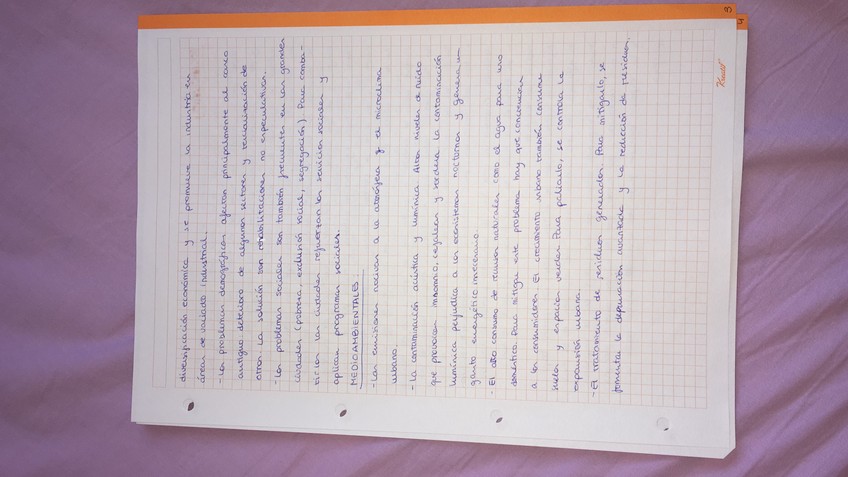 diversificación económica y se promueve la industria en
áreas de vaciado industrial.
- Los problemas demográficos afectan principalmente al casco
antiguo: deterioro de algunos sectores y revalorización de
otros. La solución son rehabilitaciones no especulativas.
- Los problemas sociales son también frecuentes en las grandes
ciudades (pobreza, exclusión social, segregación). Para comba-
tirlos las ciudades refuerzan los servicios sociales y
aplican programas sociales.
MEDIOAMBIENTALES
- Las emisiones afectan a la atmósfera y el microclima
urbano.
- La contaminación acústica y lumínica. Altos niveles de ruido
que provocan insomnio, cefaleas y sordera. La contaminación
lumínica perjudica a los ecosistemas nocturnos y genera un
gasto energético innecesario.
- El alto consumo de recursos naturales como el agua para uso
doméstico. Para mitigar este problema hay que concienciar
a los consumidores. El crecimiento urbano también consume
suelos y espacios verdes. Para paliarlo, se controla la
expansión urbana.
- El tratamiento de residuos generados. Para mitigarlo, se
fomenta la depuración avanzada y la reducción de residuos.
3
4